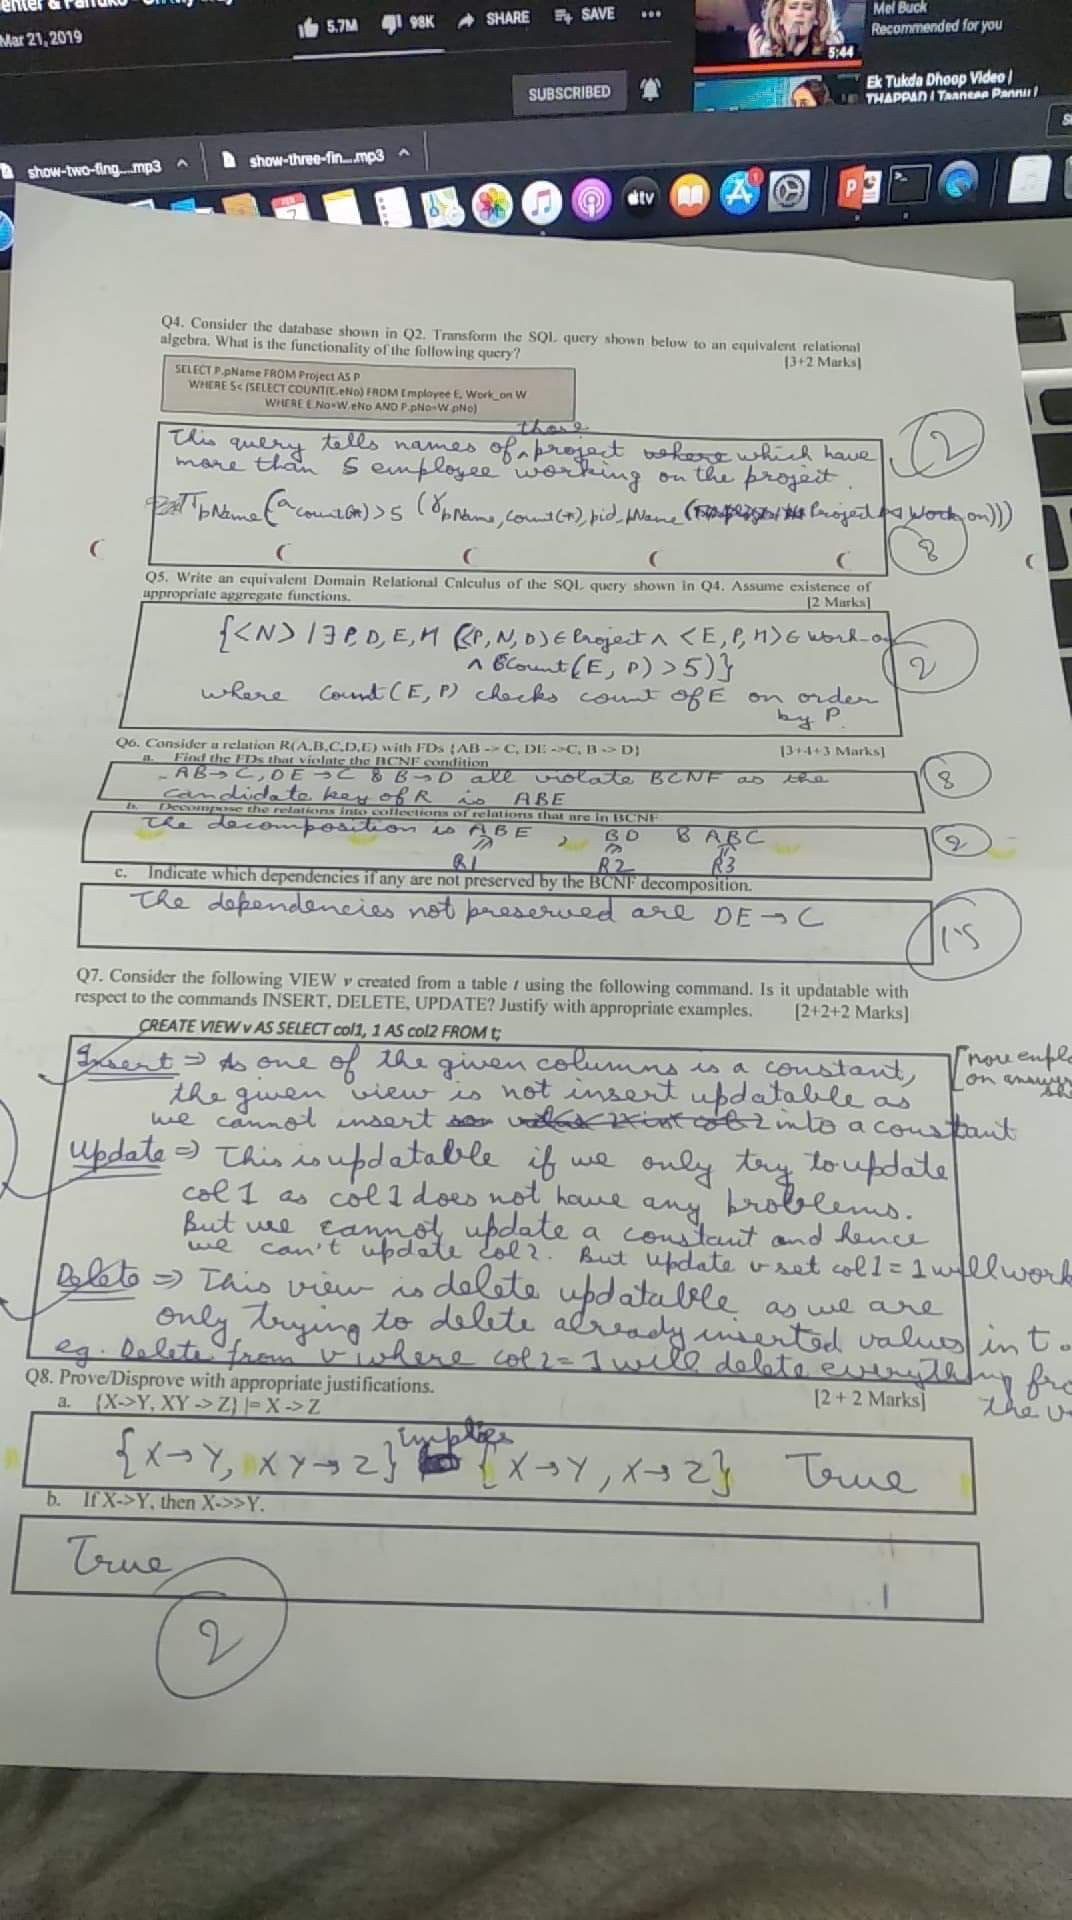 Mar 21, 2019
5.7M
98K
SHARE
SAVE
Mel Buck
Recommended for you
5:44
SUBSCRIBED
Ek Tukda Dhoop Video |
THAPPAD | Taapsee Pannu |
show-two-fing....mp3
show-three-fin....mp3
tv
Q4. Consider the database shown in Q2. Transform the SQL query shown below to an equivalent relational
algebra. What is the functionality of the following query?
[3+2 Marks]
SELECT P.pName FROM Project AS P
WHERE 5< (SELECT COUNT(E.eNo) FROM Employee E, Work_on W
WHERE E.No=W.eNo AND P.pNo=W.pNo)
those
This query tells names of ^ project where which have
more than 5 employee working on the project.
2
π pName (σ count(*) > 5 (γ pName, count(*), pid, pName ( Project ⋈ Work_on)))
3
Q5. Write an equivalent Domain Relational Calculus of the SQL query shown in Q4. Assume existence of
appropriate aggregate functions.
[2 Marks]
{<N> | ∃ P, D, E, H (<P, N, D> ∈ Project ∧ <E, P, H> ∈ Work-on
∧ Count(E, P) > 5)}
where Count(E, P) checks count of E on order
by P.
2
Q6. Consider a relation R(A,B,C,D,E) with FDs {AB -> C, DE ->C, B -> D}
[3+4+3 Marks]
a. Find the FDs that violate the BCNF condition
AB → C, DE → C & B → D all violate BCNF as the
candidate key of R is ABE
3
b. Decompose the relations into collections of relations that are in BCNF
The decomposition is ABE, BD & ABC
R1 R2 R3
2
c. Indicate which dependencies if any are not preserved by the BCNF decomposition.
The dependencies not preserved are DE → C
1.5
Q7. Consider the following VIEW v created from a table t using the following command. Is it updatable with
respect to the commands INSERT, DELETE, UPDATE? Justify with appropriate examples.
[2+2+2 Marks]
CREATE VIEW v AS SELECT col1, 1 AS col2 FROM t;
Insert ⇒ As one of the given columns is a constant,
the given view is not insert updatable as
we cannot insert into a constant
Update ⇒ This is updatable if we only try to update
col 1 as col 1 does not have any problems.
But we cannot update a constant and hence
we can't update col 2. But update v set col 1 = 1 will work
Delete ⇒ This view is delete updatable as we are
only trying to delete already inserted values in t.
eg. Delete from v where col 2 = 1 will delete everything fro
the v
Q8. Prove/Disprove with appropriate justifications.
[2 + 2 Marks]
a. {X->Y, XY -> Z} |= X -> Z
{X → Y, XY → Z} implies {X → Y, X → Z} True
b. If X->Y, then X->>Y.
True
2